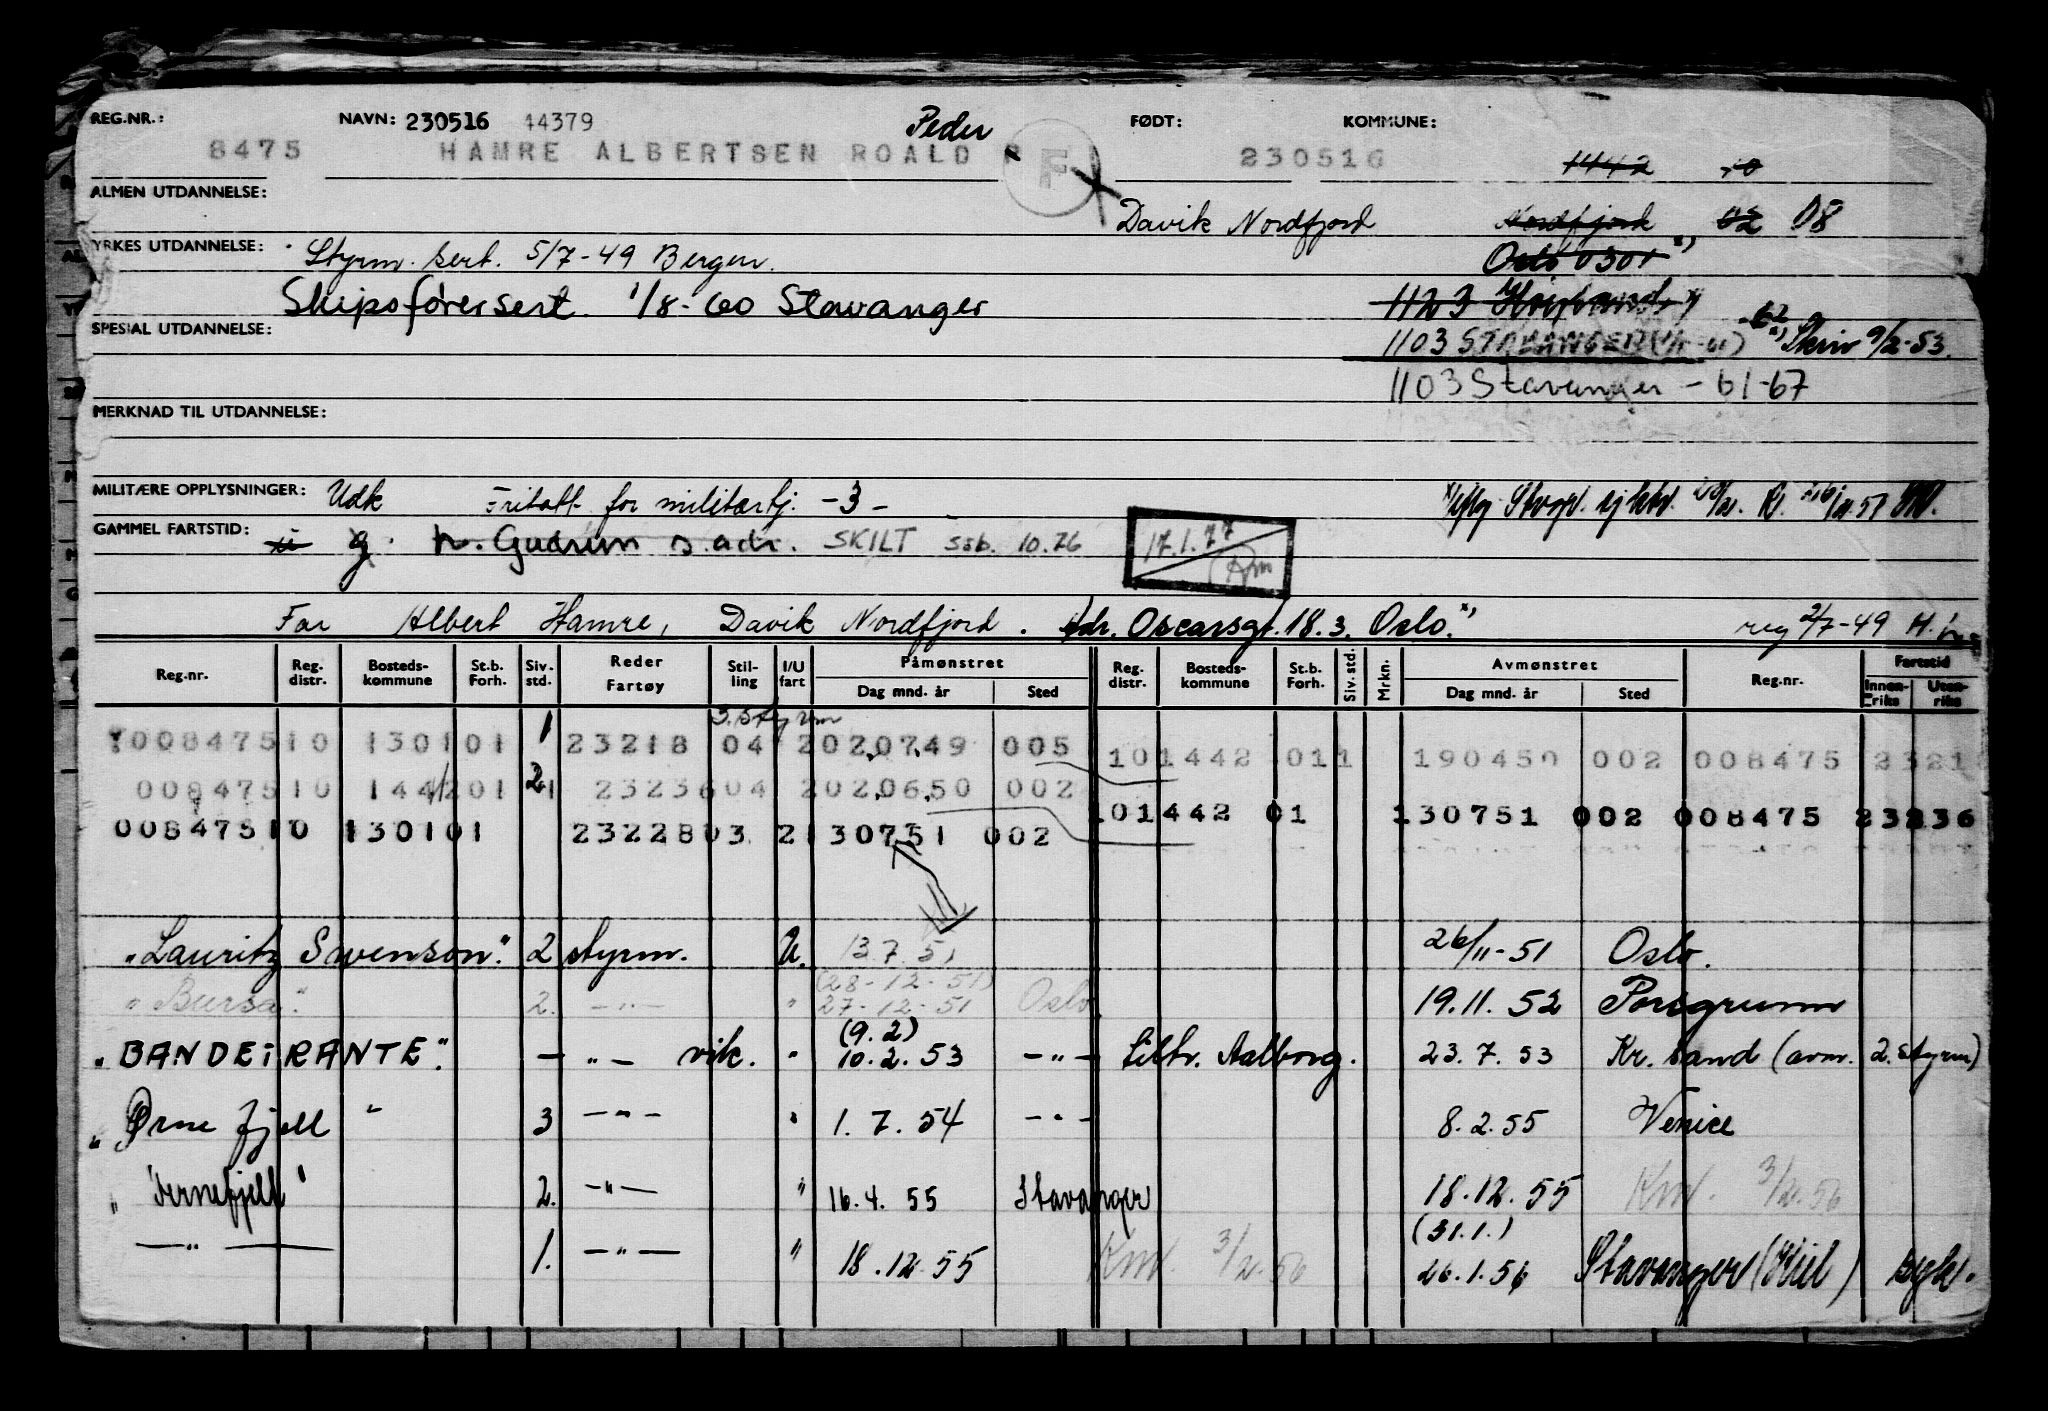 REG.NR.: NAVN: 230516 44379 Peder FØDT: KOMMUNE:
8475 HAMRE ALBERTSEN ROALD P F 230516 1442 10
ALMEN UTDANNELSE:
Davik Nordfjord Nordfjord 02 08
YRKES UTDANNELSE: Styrm. sert. 5/7-49 Bergen. Oslo 0301 x)
Skipsførersert. 1/8-60 Stavanger 1123
SPESIAL UTDANNELSE: 1103 STAVANGER Skriv 9/2-53.
1103 Stavanger - 61-67
MERKNAD TIL UTDANNELSE:
MILITÆRE OPPLYSNINGER: Udk Fritatt for militærtj. -3-
GAMMEL FARTSTID: g. h. Gudrun s. adr. SKILT ssb. 10.76 17.1.77
Far Albert Hamre, Davik Nordfjord. Adr. Oscarsgt. 18.3. Oslo. x) reg 2/7-49
Reg.nr. Reg. distr. Bosteds-kommune St.b. Forh. Siv. std. Reder Fartøy Stil-ling I/U fart Påmønstret Dag mnd. år Sted Reg. distr. Bosteds-kommune St.b. Forh. Siv. std. Mrkn. Avmønstret Dag mnd. år Sted Reg.nr. Fartstid Innen-riks Uten-riks
3. Styrm
00847510 130101 1 23218 04 2020749 005 101442 011 190450 002 008475 2321
00847510 144201 21 2323604 2020650 002
101442 01 130751 002 008475 23236
00847510 130101 2322803 2130751 002
"Lauritz Swenson" 2 styrm. U. 13.7.51 26/11-51 Oslo.
(28-12-51)
"Bursa" 2. -"- " 27-12-51 Oslo. 19.11.52 Porsgrunn
(9.2)
"BANDEIRANTE" -"- vik. " 10.2.53 -"- tiltr. Aalborg. 23.7.53 Kr. sand (avm. 2. styrm)
"Ørnefjell" 3 -"- " 1.7.54 -"- 8.2.55 Venice
"Ternefjell" 2. -"- " 16.4.55 Stavanger 18.12.55 KM. 3/2.56
(31.1.)
-"- 1. -"- " 18.12.55 KM. 3/2.56 26.1.56 Stavanger (Kiel) syk.